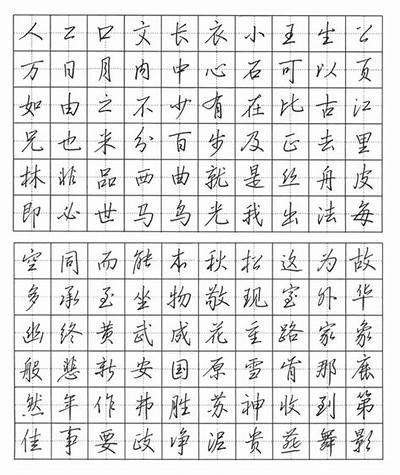 人工口文长衣小王生公
万日月内中心石可以页
如由之不少有在比古江
兄也米分百步及正去里
林非品西曲就是丝舟皮
即必世马鸟光我出法每
空同而能本秋松这为故
多承至坐物敬现室外华
幽终黄武成花重路家象
般悲新安国原雪肯那鹿
然年作弗胜苏神收到第
佳事要歧净泥贵燕舞影